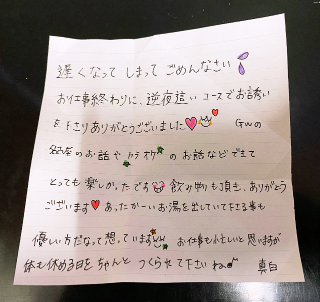 遅くなってしまってごめんなさい
お仕事終わりに、逆夜這いコースでお誘い
を下さりありがとうございました
GWの
名古屋のお話やカラオケのお話などできて
とっても楽しかったです 飲み物も頂き、ありがとう
ございます あったかーいお湯を出していて下さる事も
優しい方だなって想っています お仕事も忙しいと思いますが
体も休める日をちゃんとつくられて下さいね
真白